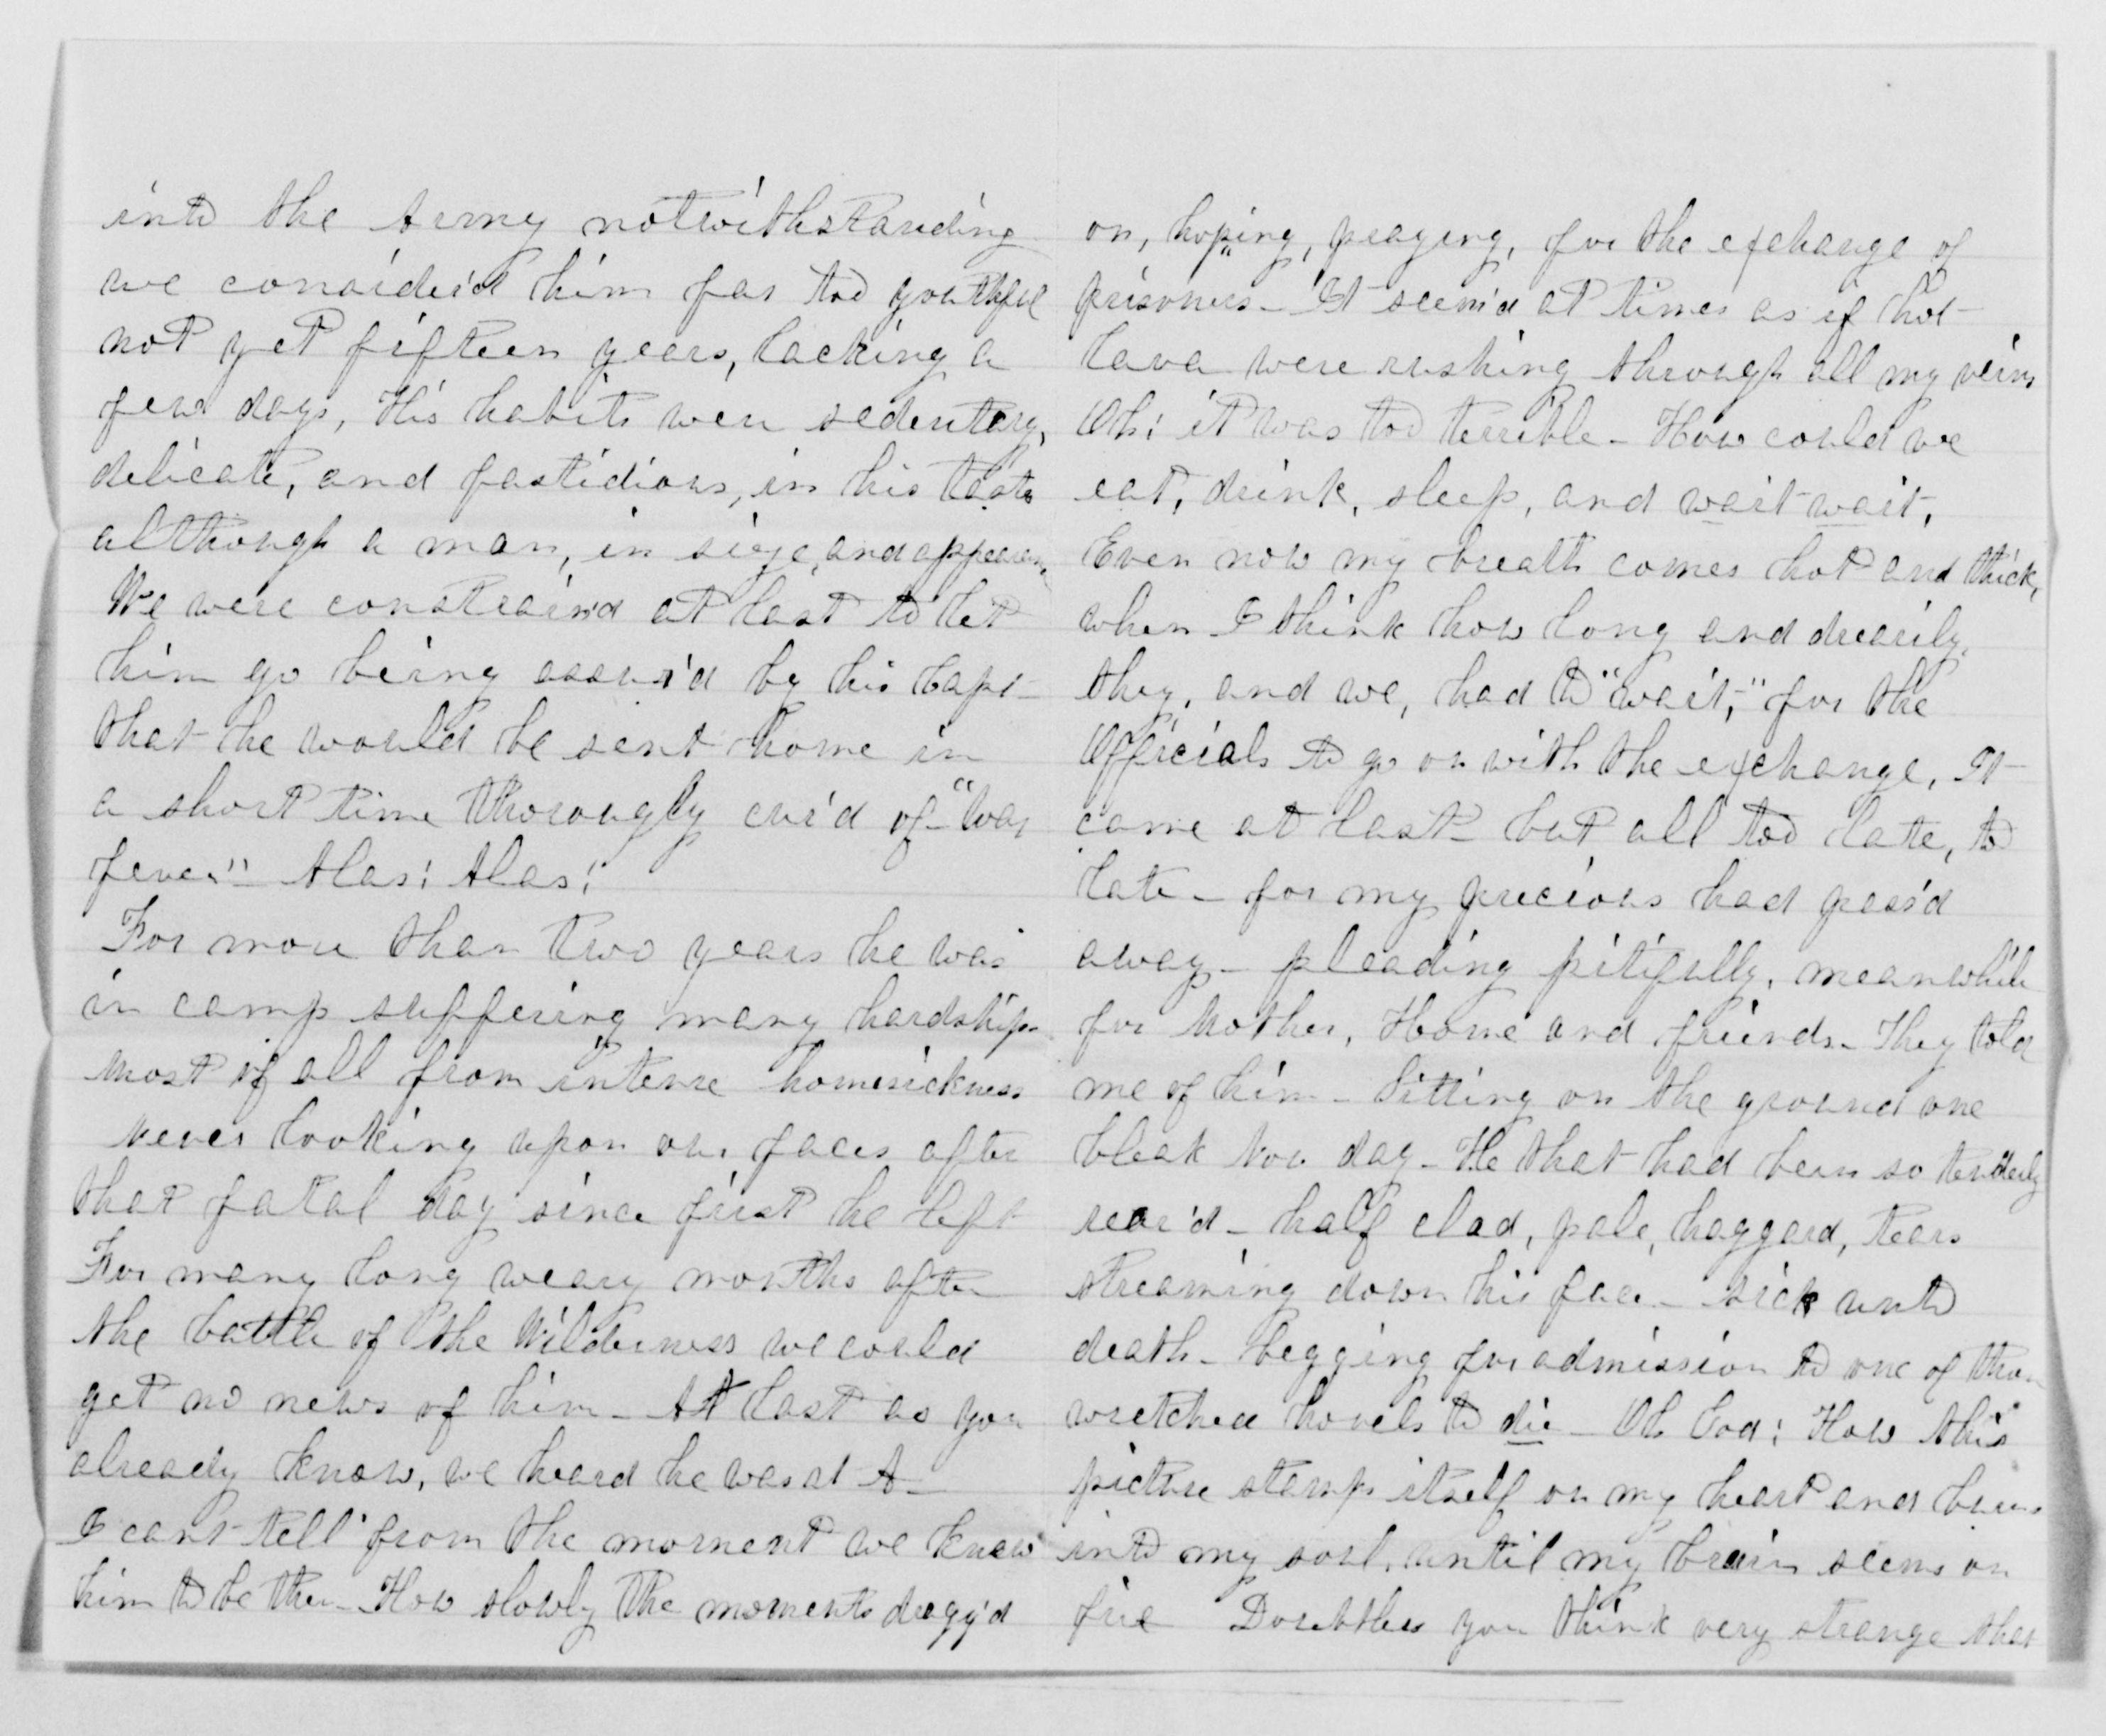 into the Army notwithstanding
we consider'd him far too youthful
not yet fifteen years, lacking a
few days, His habits were sedentary,
delicate, and fastidious, in his taste
although a man, in size, and appearance,
We were constrain'd at last to let
him go being assur'd by his Capt-
that he would be sent home in
a short time thorougly cur'd of "War
fever" - Alas! Alas!
For more than two years he was
in camp suffering many hardships
most of all from intense homesickness
never looking upon our faces after
that fatal day since first he left
For many long weary months after
the battle of the Wilderness we could
get no news of him - At last as you
already know, we heard he was at A-
I can't tell from the moment we knew
him to be there - How slowly the moments dragg'd
on, hoping, praying, for the exchange of
prisoners - It seem'd at times as if hot
lava were rushing through all my veins
Oh! it was too terrible - How could we
eat, drink, sleep, and wait wait,
Even now my breath comes hot and thick,
when I think how long and drearily,
they, and we, had to "wait," for the
Officials to go on with the exchange, It
came at last - but all too late, to
late - for my precious had pass'd
away - pleading pitifully, meanwhile
for Mother, Home and friends - They told
me of him - Sitting on the ground one
bleak Nov day - He that had been so tenderly
rear'd - half clad, pale, haggard, tears
streaming down his face - sick unto
death - begging for admission to one of those
wretched hovels to die - Oh God! How this
picture stamps itself on my heart and burns
into my soul, until my brain seems on
fire Doubtless you think very strange that